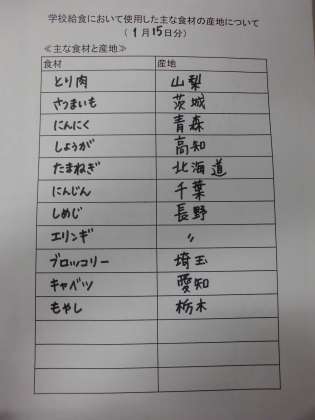 学校給食において使用した主な食材の産地について
（1月15日分）
≪主な食材と産地≫
食材 産地
とり肉 山梨
さつまいも 茨城
にんにく 青森
しょうが 高知
たまねぎ 北海道
にんじん 千葉
しめじ 長野
エリンギ 〃
ブロッコリー 埼玉
キャベツ 愛知
もやし 栃木